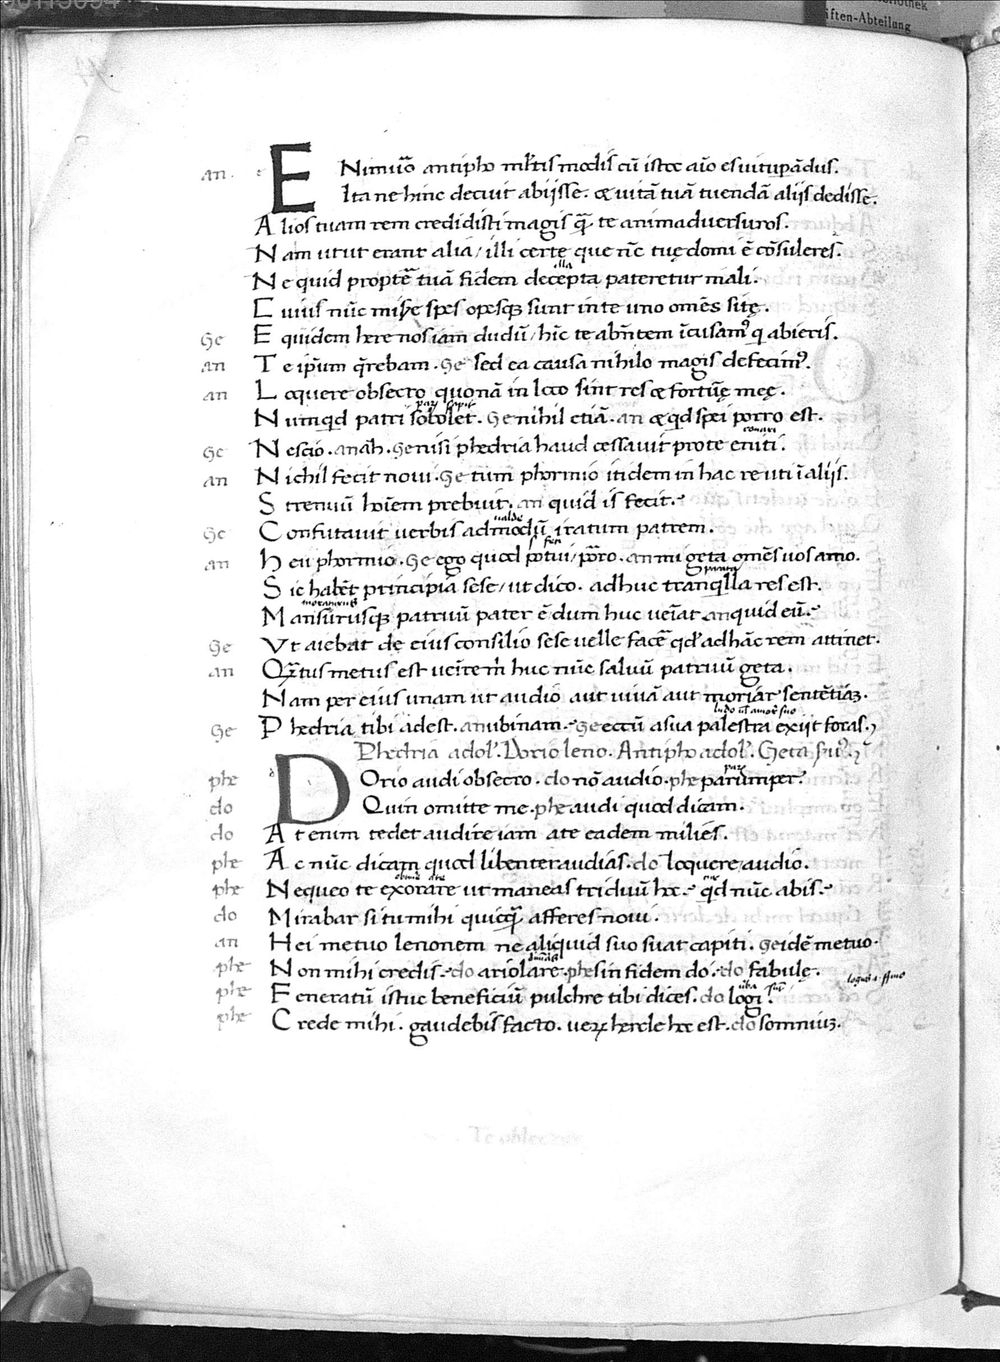 an. ENimuo antipho mltis modis cū istoc aīo es vitupādus.
Ita ne hinc decuit abijsse. & uitā tuā tuendā alijs dedisse.
Alios tuam rem credidisti magis q̄ te animaduersuros.
Nam utut erant alia, illi certe que nc̄ tuę domi ē cōsuleres.
illa
Ne quid propt̄ tuā fidem decepta pateretur mali.
Cuius nūc misͤe spes opesqꝫ sunt in te uno omēs sitę.
Ge Equidem here nos iam dudū hīc te abn̄tem īcusamꝰ q abieris.
an Te ipm̄ q̄rebam. Ge sed ea causa nihilo magis defecimꝰ.
an Loquere obsecro quonā in loco sint res & fortūę meę.
Numqd patri sobolet. Ge nihil etiā. an & qd spei porro est.
conari
Ge Nescio. an ah. Ge nisi phedria haud cessauit pro te eniti.
an Nichil fecit noui. Ge tum phormio itidem in hac re uti ī alijs.
Strenuū hoīem prebuit. an quid is fecit.
ualde
Ge Confutauit uerbis admodū iratum patrem.
an Heu phormio. Ge ego quod potui, porro. an mi geta omēs uos amo.
Sic habēt principia sese, ut dico. adhuc tranqlla res est.
Mansurusqꝫ patruū pater ē dum huc ueīat. an quid eū.
Ge Vt aiebat de eius consilio sese uelle facē qd̄ ad hāc rem attinet.
an Qᷓtus metus est ueīre m̄ huc nūc saluū patruū geta.
Nam per eius unam ut audio aut uiuā aut moriar sentētiaꝫ.
Ge Phedria tibi adest. an ubinam. Ge eccū a sua palestra exijt foras.
Phedria adolꝰ. Dorio leno. Antipho adolꝰ. Geta suꝰ.
phe DOrio audi obsecro. do nō audio. phe parumper.
do Quin omitte me. phe audi quod dicam.
do At enim tedet audire iam ate eadem milies.
phe Ac nūc dicam quod libenter audias. do loquere audio.
phe Nequeo te exorare ut maneas triduū hoc. qd nūc abis.
do Mirabar si tu mihi quicq̄ afferes noui.
an Hei metuo lenonem ne aliquid suo suat capiti. Ge idē metuo.
phe Non mihi credis. do ariolare. phe sin fidem do. do fabulę.
phe Feneratū istuc beneficiū pulchre tibi dices. do logi.
phe Crede mihi. gaudebis facto. uerꝫ hercle hoc est. do somniuꝫ.
Te obsecro